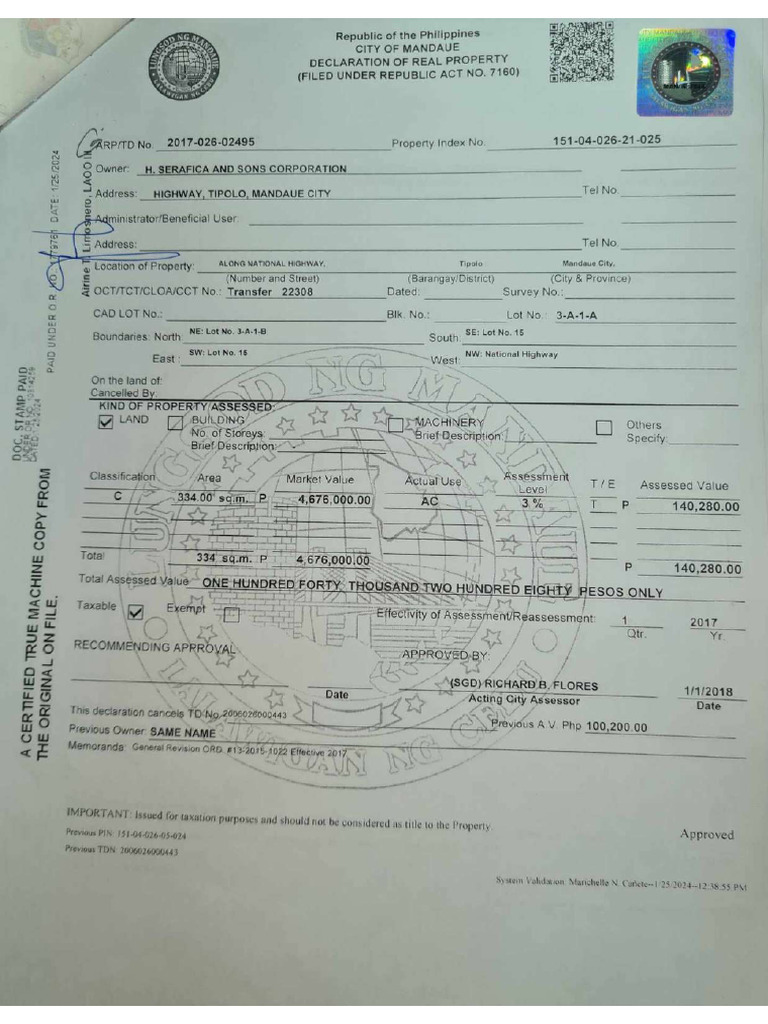 LUNGSOD NG MANDAUE
LALAWIGAN NG CEBU
Republic of the Philippines
CITY OF MANDAUE
DECLARATION OF REAL PROPERTY
(FILED UNDER REPUBLIC ACT NO. 7160)
CITY OF MANDAUE
ARP/TD No. 2017-026-02495 Property Index No. 151-04-026-21-025
Owner: H. SERAFICA AND SONS CORPORATION
Address: HIGHWAY, TIPOLO, MANDAUE CITY Tel No.
Administrator/Beneficial User:
Address: Tel No.
Location of Property: ALONG NATIONAL HIGHWAY, Tipolo Mandaue City,
(Number and Street) (Barangay/District) (City & Province)
OCT/TCT/CLOA/CCT No.: Transfer 22308 Dated: Survey No.:
CAD LOT No.: Blk. No.: Lot No.: 3-A-1-A
Boundaries: North NE: Lot No. 3-A-1-B South SE: Lot No. 15
East : SW: Lot No. 15 West: NW: National Highway
On the land of:
Cancelled By:
KIND OF PROPERTY ASSESSED:
LAND BUILDING MACHINERY Others
No. of Storeys: Brief Description: Specify:
Brief Description: -
Classification Area Market Value Actual Use Assessment Level T / E Assessed Value
C 334.00 sq.m. P 4,676,000.00 AC 3 % T P 140,280.00
Total 334 sq.m. P 4,676,000.00 P 140,280.00
Total Assessed Value ONE HUNDRED FORTY THOUSAND TWO HUNDRED EIGHTY PESOS ONLY
Taxable Exempt Effectivity of Assessment/Reassessment: 1 2017
Qtr. Yr.
RECOMMENDING APRROVAL APPROVED BY:
(SGD) RICHARD B. FLORES 1/1/2018
Date Acting City Assessor Date
This declaration cancels TD No. 2006026000443
Previous Owner: SAME NAME Previous A.V. Php 100,200.00
Memoranda: General Revision ORD. #13-2015-1022 Effective 2017
IMPORTANT: Issued for taxation purposes and should not be considered as title to the Property.
Previous PIN: 151-04-026-05-024 Approved
Previous TDN: 2006026000443
System Validation: Marichelle N. Cañete--1/25/2024--12:38:55 PM
A CERTIFIED TRUE MACHINE COPY FROM
THE ORIGINAL ON FILE.
DOC. STAMP PAID
PAID UNDER O.R. NO. DATE: 1/25/2024
Airine T. Limosnero, LAOO III